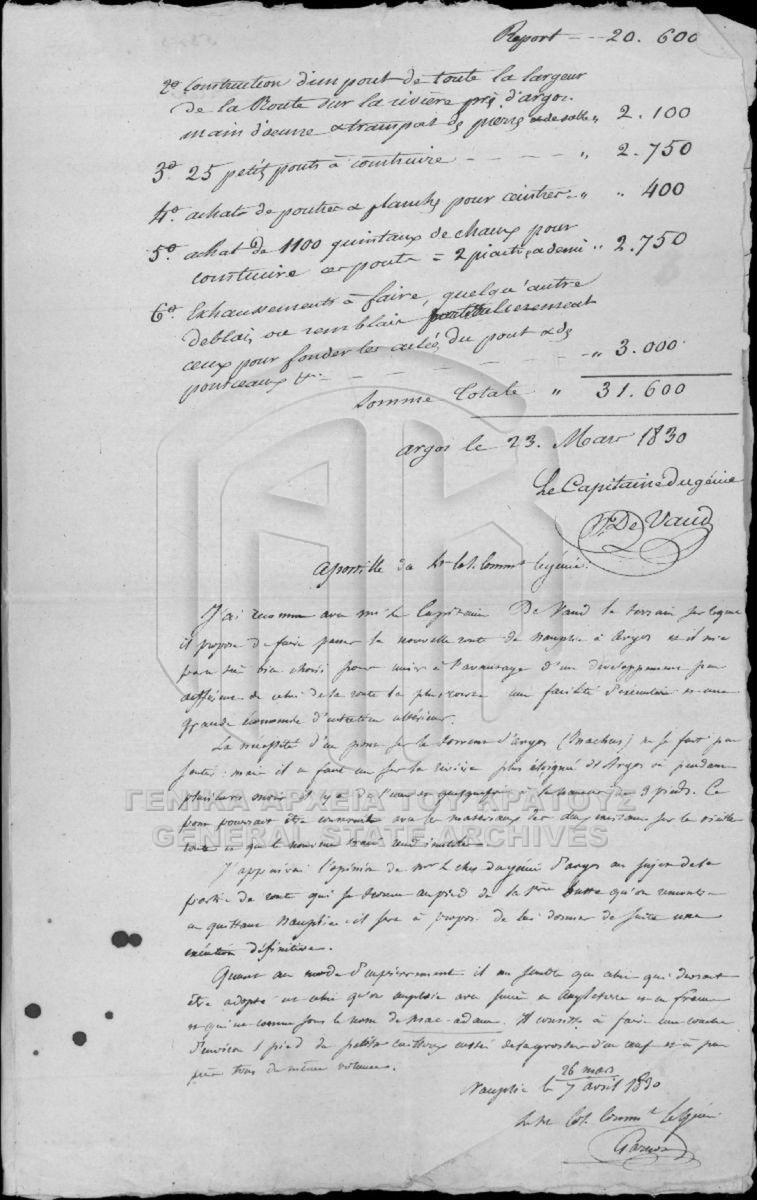 Report - - - 20. 600
2º Construction d'un pont de toute la largeur
de la Route sur la rivière près d'argos.
main d'oeuvre & transport de pierres & de sable " 2. 100
3º 25 petits ponts à construire - - - - " 2. 750
4º achats de poutres & planches pour ceintres - " " 400
5º achat de 1100 quintaux de chaux pour
construire ce ponts = 2 piastres & demi " 2. 750
6º Exhaussements à faire, quelqu'autre
deblais, ou remblais particulièrement
ceux pour fonder les culées du pont & des
ponceaux &ª. - - - - - " 3. 000
Somme Totale " 31. 600
argos le 23. Mars 1830
Le Capitaine du génie
De Vaud
apostille du Lt Col. Commt le génie.
J'ai reconnu avec Mr le Capitaine De Vaud le terrain sur lequel
il propose de faire passer la nouvelle route de Nauplie à Argos et il m'a
paru très bien choisi pour unir à l'avantage d'un développement peu
différent de celui de la route la plus courte une facilité d'exécution et une
grande économie d'entretien ultérieur.
La nécessité d'un pont sur le torrent d'Argos (Inachus) ne se fait pas
sentir: mais il en faut un sur la rivière plus éloigné d'Argos où pendant
plusieurs mois il y a de l'eau et quelquefois à la hauteur de 3 pieds. Ce
pont pourrait être construit avec les matériaux sur la vieille
route et que le nouveau tracé rend inutiles.
J'appuierai l'opinion de Mr le chef du génie d'Argos au sujet de la
partie de route qui se trouve au pied de la 1ère butte qu'on rencontre
en quittant Nauplie: il sera à propos de lui donner de suite une
exécution définitive.
Quant au mode d'empierrement il me semble que celui qui devrait
être adopté est celui qu'on emploie avec succès en Angleterre et en France
et qui est connu sous le nom de Mac-adam. Il consiste à faire une couche
d'environ 1 pied de petits cailloux cassés de la grosseur d'un oeuf et à peu
près tous du même volume.
Nauplie le 26 mars
7 avril 1830
Le Lt Col. Commt le Génie
ΓΕΝΙΚΑ ΑΡΧΕΙΑ ΤΟΥ ΚΡΑΤΟΥΣ
GENERAL STATE ARCHIVES